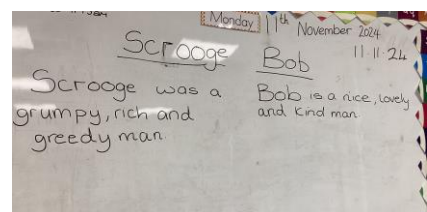 Monday 11th November 2024
11.11.24
Scrooge
Scrooge was a
grumpy, rich and
greedy man.
Bob
Bob is a nice, lovely
and kind man